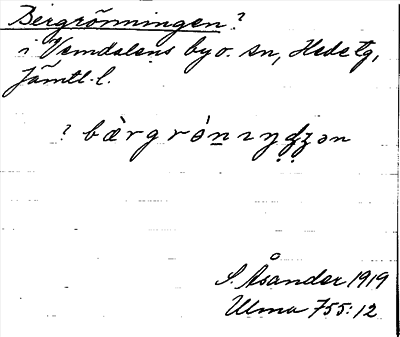 Bergrönningen?
i Vemdalens by o. sn, Hede tg,
Jämtl. l.
? bærgrönıŋdʒən
S. Åsander 1919
Ulma 755:12